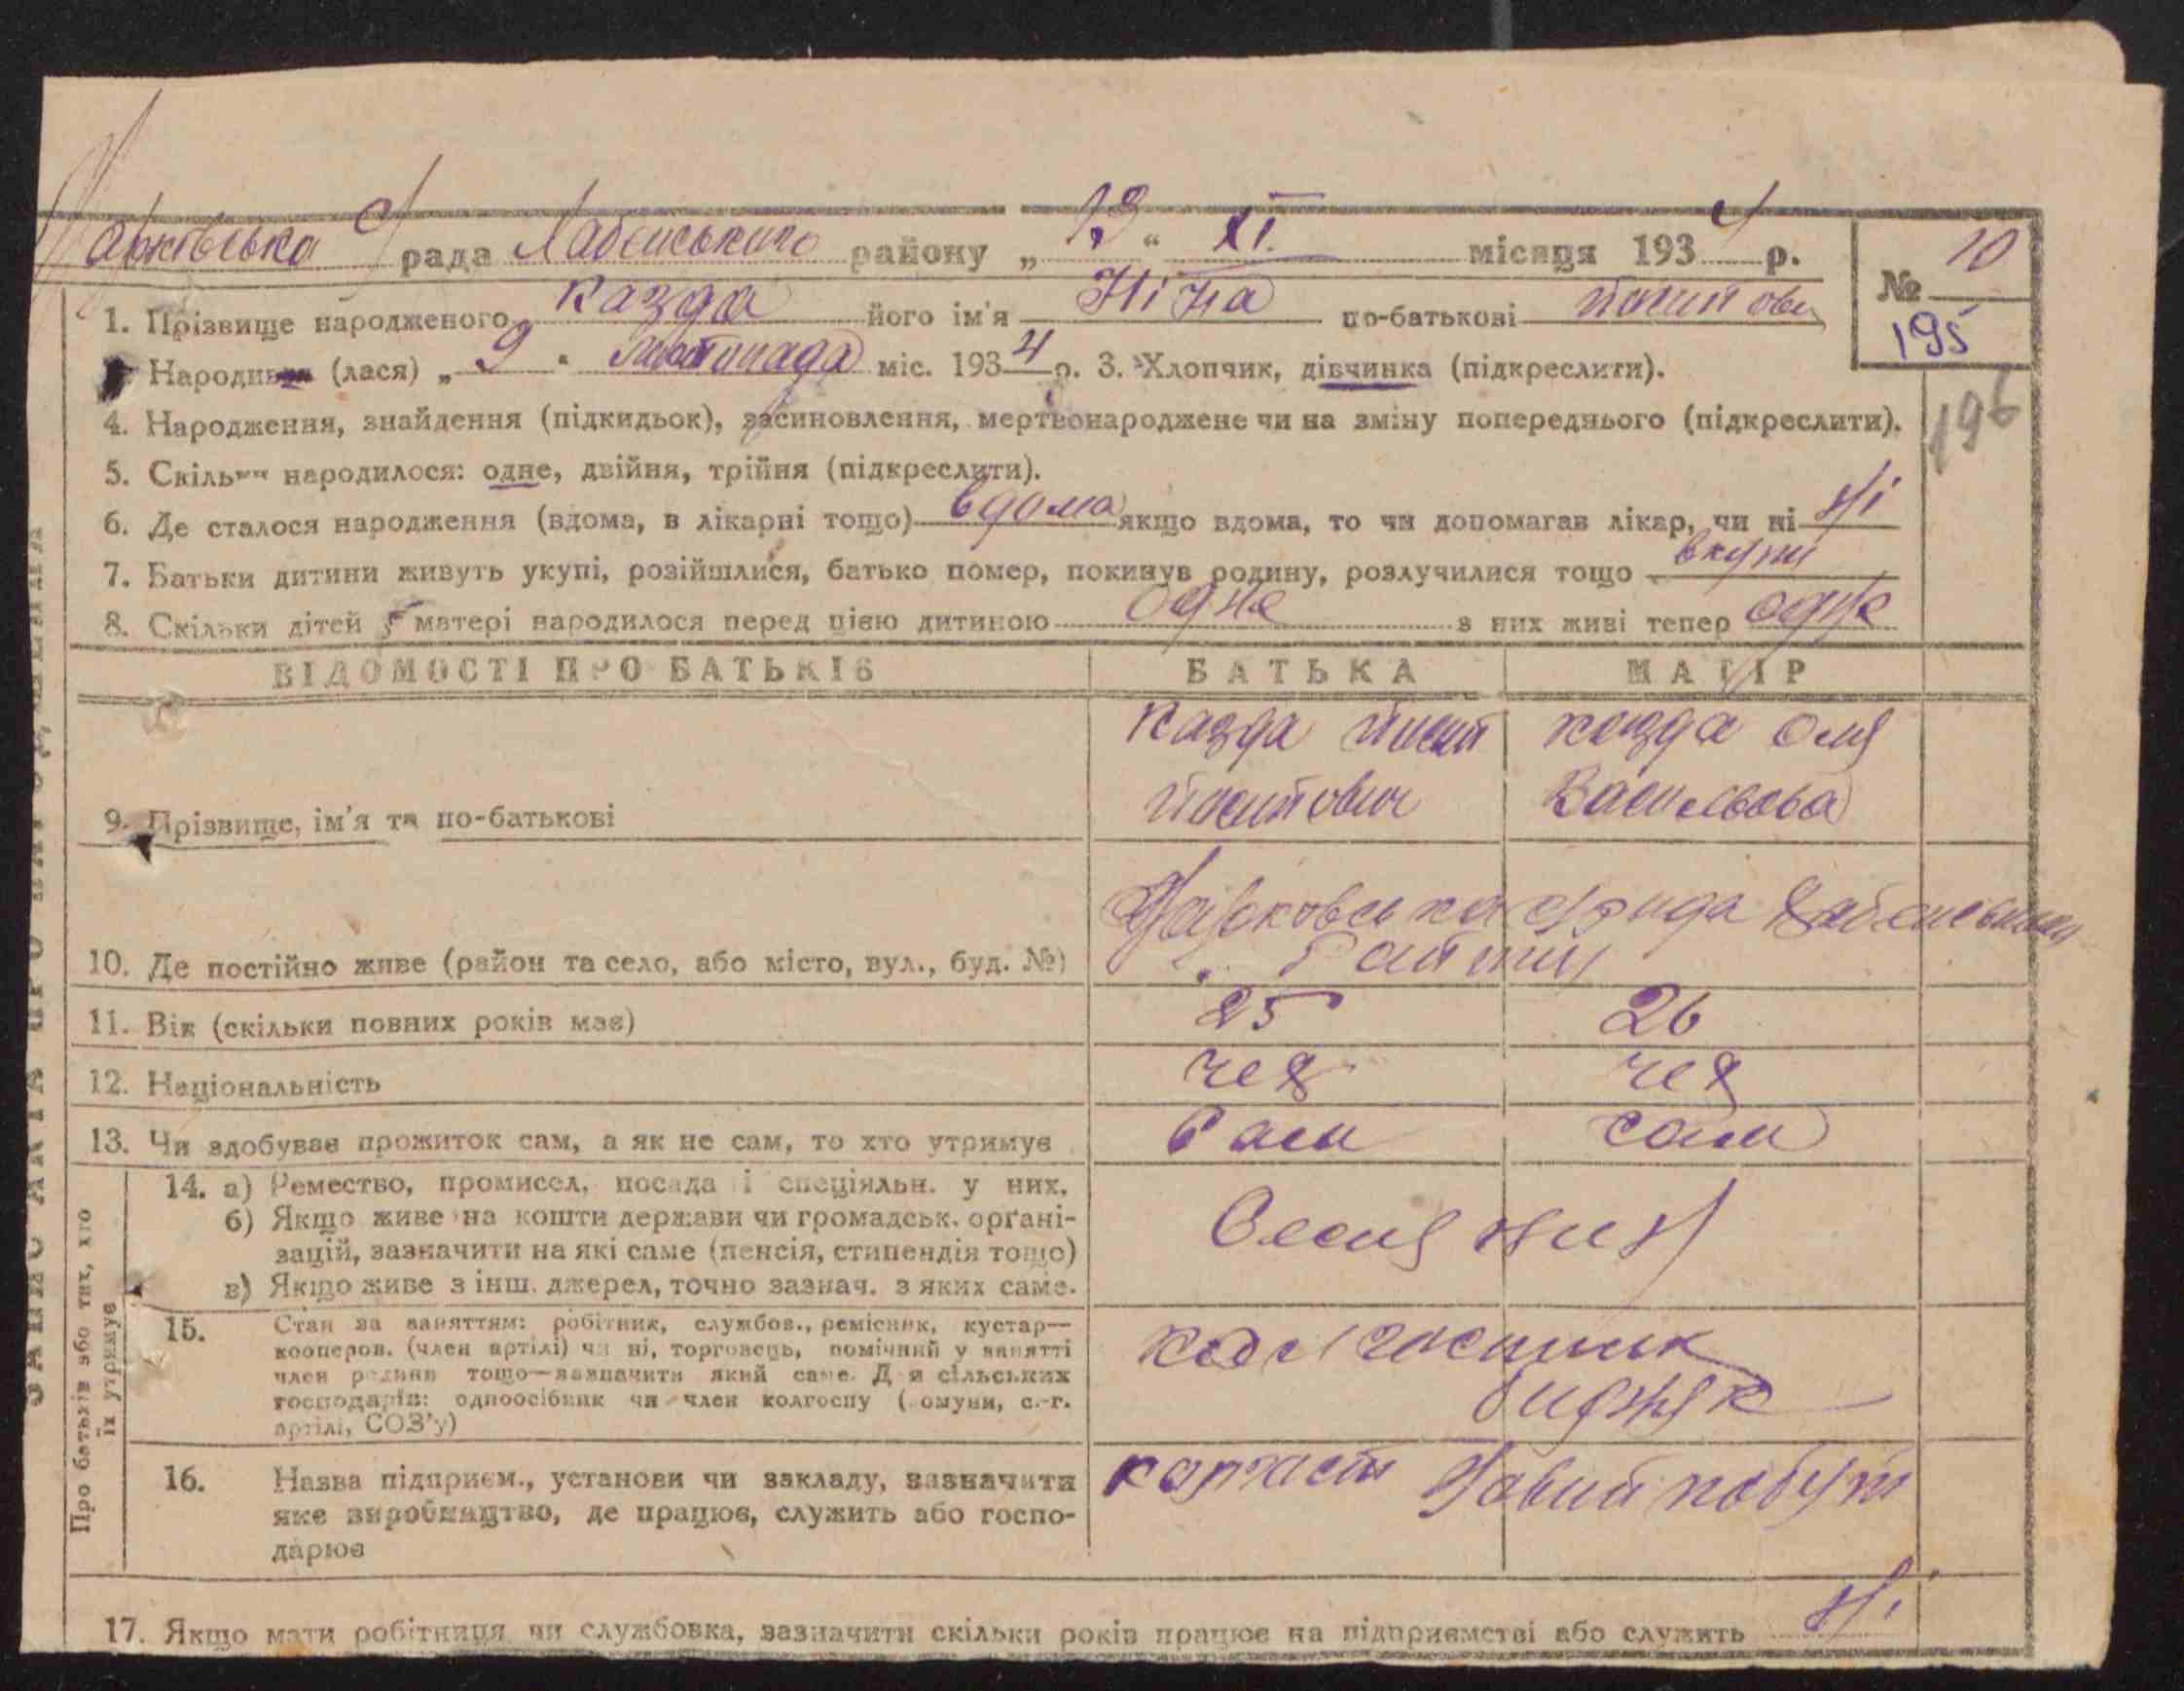 Марківська с/рада Лабенського району „13“ XI. місяця 1934 р.
№ 10
195
196
1. Прізвище народженого Казда його ім'я Ніна по-батькові Йосипови
Народився (лася) „9“ листопада міс. 1934 р. 3. Хлопчик, дівчинка (підкреслити).
4. Народження, знайдення (підкидьок), засиновлення, мертвонароджене чи на зміну попереднього (підкреслити).
5. Скільки народилося: одне, двійня, трійня (підкреслити).
6. Де сталося народження (вдома, в лікарні тощо) вдома якщо вдома, то чи допомагав лікар, чи ні Ні
7. Батьки дитини живуть укупі, розійшлися, батько помер, покинув родину, розлучилися тощо вкупи
8. Скільки дітей у матері народилося перед цією дитиною одне з них живі тепер одне
ВІДОМОСТІ ПРО БАТЬКІВ БАТЬКА МАТІР
Казда Йосип Казда Оля
9. Прізвище, ім'я та по-батькові Йосипович Васильова
10. Де постійно живе (район та село, або місто, вул., буд. №)
11. Вік (скільки повних років має) 25 26
12. Національність чех чех
13. Чи здобуває прожиток сам, а як не сам, то хто утримує Сам сама
Про батьків або тих, хто їх утримує
14. а) Ремество, промисел, посада і спеціяльн. у них.
б) Якщо живе на кошти держави чи громадськ. орґані-
зацій, зазначити на які саме (пенсія, стипендія тощо)
в) Якщо живе з інш. джерел, точно зазнач. з яких саме.
15. Стан за заняттям: робітник, службов., ремісник, кустар—
кооперов. (член артілі) чи ні, торговець, помічний у занятті
член родини тощо—зазначити який саме. Для сільських
господарів: одноосібник чи член колгоспу (комуни, с.-г.
артілі, СОЗ'у)
колгоспник
бидняк
16. Назва підприєм., установи чи закладу, зазначити
яке виробництво, де працює, служить або госпо-
дарює
Новий побут
17. Якщо мати робітниця чи службовка, зазначити скільки років працює на підприємстві або служить Ні
ЗАПИС АКТА ПРО НАРОДЖЕННЯ